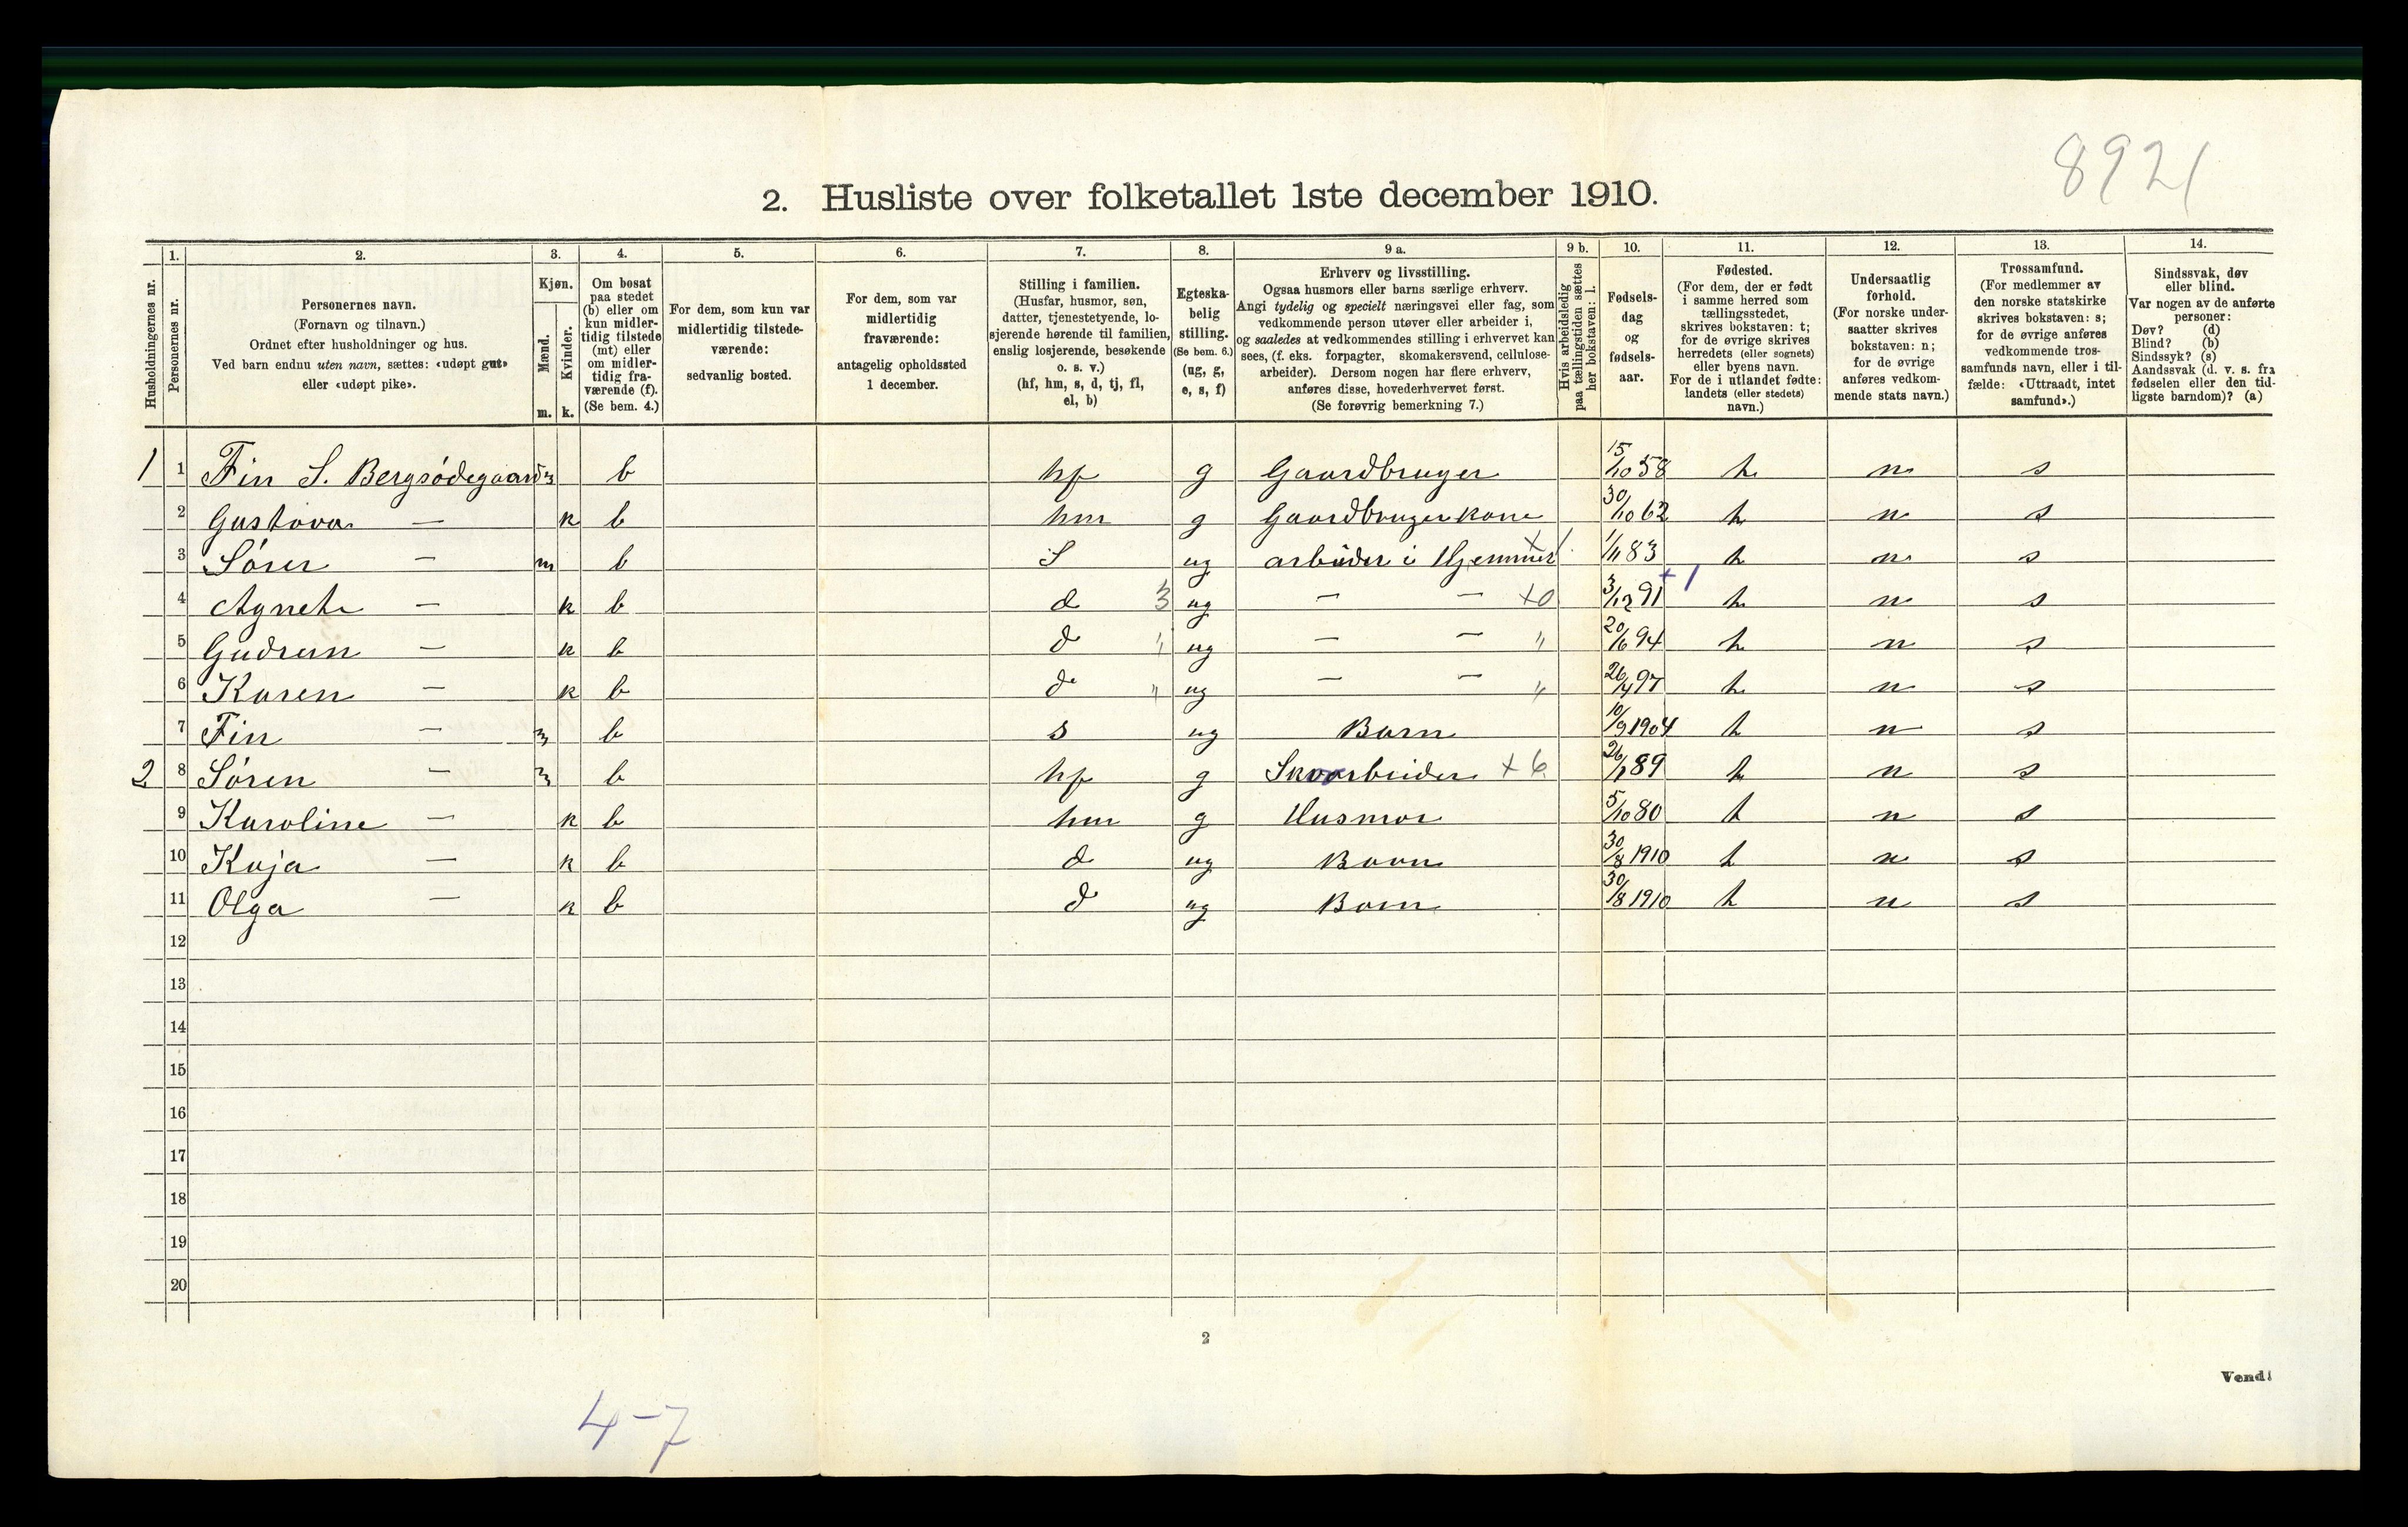 8921
2. Husliste over folketallet 1ste december 1910.
Husholdningernes nr.
1. Personernes nr.
2. Personernes navn.
(Fornavn og tilnavn.)
Ordnet efter husholdninger og hus.
Ved barn endnu uten navn, sættes: «udøpt gut»
eller «udøpt pike».
3. Kjøn.
Mænd. m.
Kvinder. k.
4. Om bosat
paa stedet
(b) eller om
kun midler-
tidig tilstede
(mt) eller
om midler-
tidig fra-
værende (f).
(Se bem. 4.)
5. For dem, som kun var
midlertidig tilstede-
værende:
sedvanlig bosted.
6. For dem, som var
midlertidig
fraværende:
antagelig opholdssted
1 december.
7. Stilling i familien.
(Husfar, husmor, søn,
datter, tjenestetyende, lo-
sjerende hørende til familien,
enslig losjerende, besøkende
o. s. v.)
(hf, hm, s, d, tj, fl,
el, b)
8. Egteska-
belig
stilling.
(Se bem. 6.)
(ug, g,
e, s, f)
9 a. Erhverv og livsstilling.
Ogsaa husmors eller barns særlige erhverv.
Angi tydelig og specielt næringsvei eller fag, som
vedkommende person utøver eller arbeider i,
og saaledes at vedkommendes stilling i erhvervet kan
sees, (f. eks. forpagter, skomakersvend, cellulose-
arbeider). Dersom nogen har flere erhverv,
anføres disse, hovederhvervet først.
(Se forøvrig bemerkning 7.)
9 b. Hvis arbeidsledig
paa tællingstiden sættes
her bokstaven: l.
10. Fødsels-
dag
og
fødsels-
aar.
11. Fødested.
(For dem, der er født
i samme herred som
tællingsstedet,
skrives bokstaven: t;
for de øvrige skrives
herredets (eller sognets)
eller byens navn.
For de i utlandet fødte:
landets (eller stedets)
navn.)
12. Undersaatlig
forhold.
(For norske under-
saatter skrives
bokstaven: n;
for de øvrige
anføres vedkom-
mende stats navn.)
13. Trossamfund.
(For medlemmer av
den norske statskirke
skrives bokstaven: s;
for de øvrige anføres
vedkommende tros-
samfunds navn, eller i til-
fælde: «Uttraadt, intet
samfund».)
14. Sindssvak, døv
eller blind.
Var nogen av de anførte
personer:
Døv? (d)
Blind? (b)
Sindssyk? (s)
Aandssvak (d. v. s. fra
fødselen eller den tid-
ligste barndom)? (a)
1 1 Fin S. Bergsødegaard m b hf g Gaardbruger 15/10 58 t n s
2 Gustava — k b hm g Gaardbrugerkone 30/10 62 t n s
3 Sører — m b S ug arbeider i Hjemmet x 1/11 83 t n s
4 Agnete — k b d 3 ug — — x0 3/12 91 + 1 t n s
5 Gudrun — k b d " ug — — " 20/6 94 t n s
6 Karen — k b d " ug — — " 26/4 97 t n s
7 Fin — m b s ug Barn 10/9 1904 t n s
2 8 Søren — m b hf g Skoarbeider x 6 89 t n s
9 Karoline — k b hm g Husmor 5/10 80 t n s
10 Kaja — k b d ug Barn 30/8 1910 t n s
11 Olga — k b d ug Barn 30/8 1910 t n s
12
13
14
15
16
17
18
19
20
2
Vend!
4-7